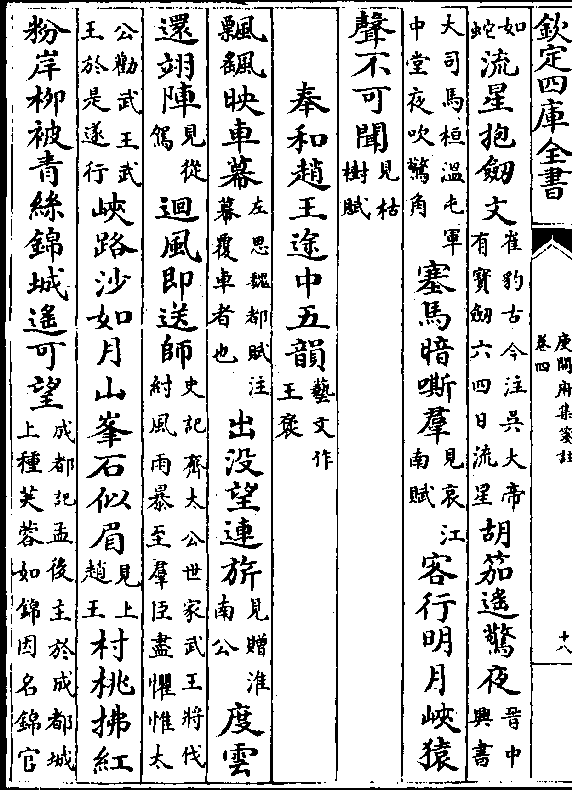 欽定四庫全書
庾開府集箋註
卷四
十八
如
蛇流星抱劔文崔豹古今注吳大帝
有寶劔六四曰流星胡笳遙驚夜晉中
興書
大司馬桓溫屯軍
中堂夜吹驚角塞馬暗嘶羣見哀江
南賦客行明月峽猿
聲不可聞見枯
樹賦
奉和趙王途中五韻藝文作
王裒
飄飖映車幕左思魏都賦注
幕覆車者也出没望連旂見贈淮
南公度雲
還翊陣見從
駕迴風即送師史記齊太公世家武王將伐
紂風雨暴至羣臣盡懼惟太
公勸武王武
王於是遂行峽路沙如月山峯石似眉見上
趙王村桃拂紅
粉岸柳被青絲錦城遙可望成都記孟後主於成都城
上種芙蓉如錦因名錦官